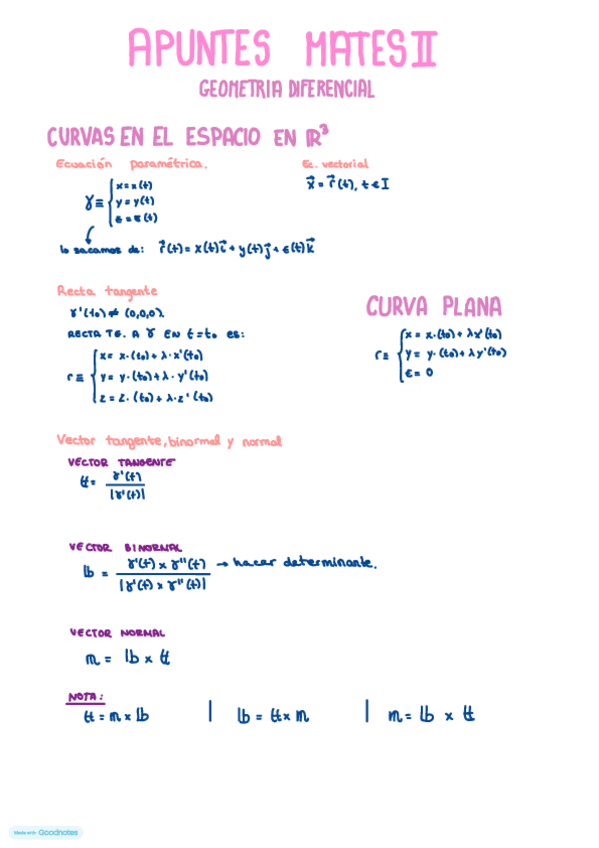 APUNTES MATES II
GEOMETRIA DIFERENCIAL
CURVAS EN EL ESPACIO EN ℝ³
Ecuación paramétrica.
Ec. vectorial
γ ≡ { x = x(t)
y = y(t)
z = z(t)
x⃗ = r⃗(t), t ∈ I
lo sacamos de: r⃗(t) = x(t)i⃗ + y(t)j⃗ + z(t)k⃗
Recta tangente
γ'(t₀) ≠ (0,0,0).
RECTA TG. A γ EN t = t₀ es:
r ≡ { x = x·(t₀) + λ·x'(t₀)
y = y·(t₀) + λ·y'(t₀)
z = z·(t₀) + λ·z'(t₀)
CURVA PLANA
r ≡ { x = x·(t₀) + λx'(t₀)
y = y·(t₀) + λy'(t₀)
z = 0
Vector tangente, binormal y normal
VECTOR TANGENTE
𝕥 = γ'(t) / |γ'(t)|
VECTOR BINORMAL
𝕓 = γ'(t) × γ''(t) / |γ'(t) × γ''(t)| → hacer determinante.
VECTOR NORMAL
𝕟 = 𝕓 × 𝕥
NOTA:
𝕥 = 𝕟 × 𝕓 | 𝕓 = 𝕥 × 𝕟 | 𝕟 = 𝕓 × 𝕥
Made with Goodnotes